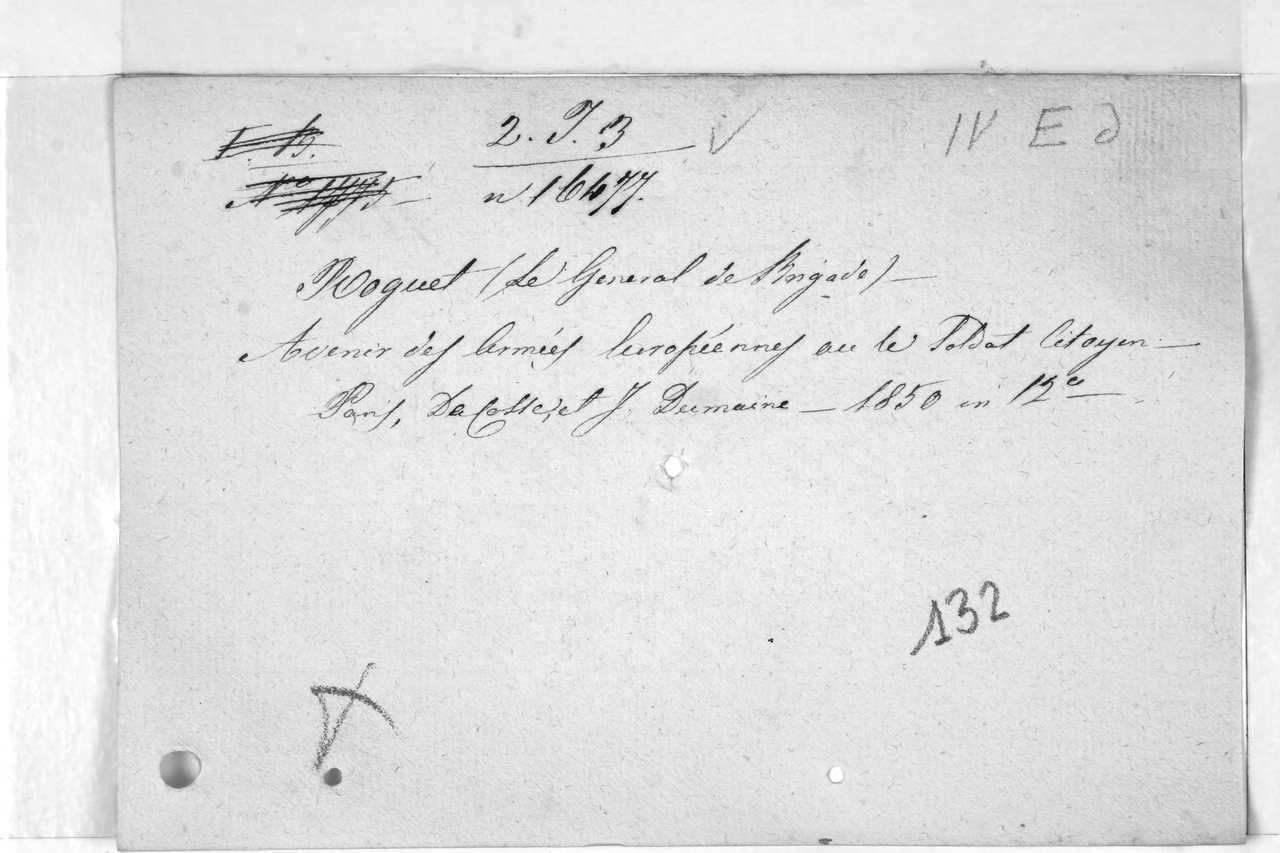 2. J. 3 IV E d
n° 16477.
Roguet (Le Géneral de Brigade) —
Avenir des Armées Européennes ou le Soldat Citoyen —
Paris, Dacosse, et J. Dumaine — 1850 in 12°
132